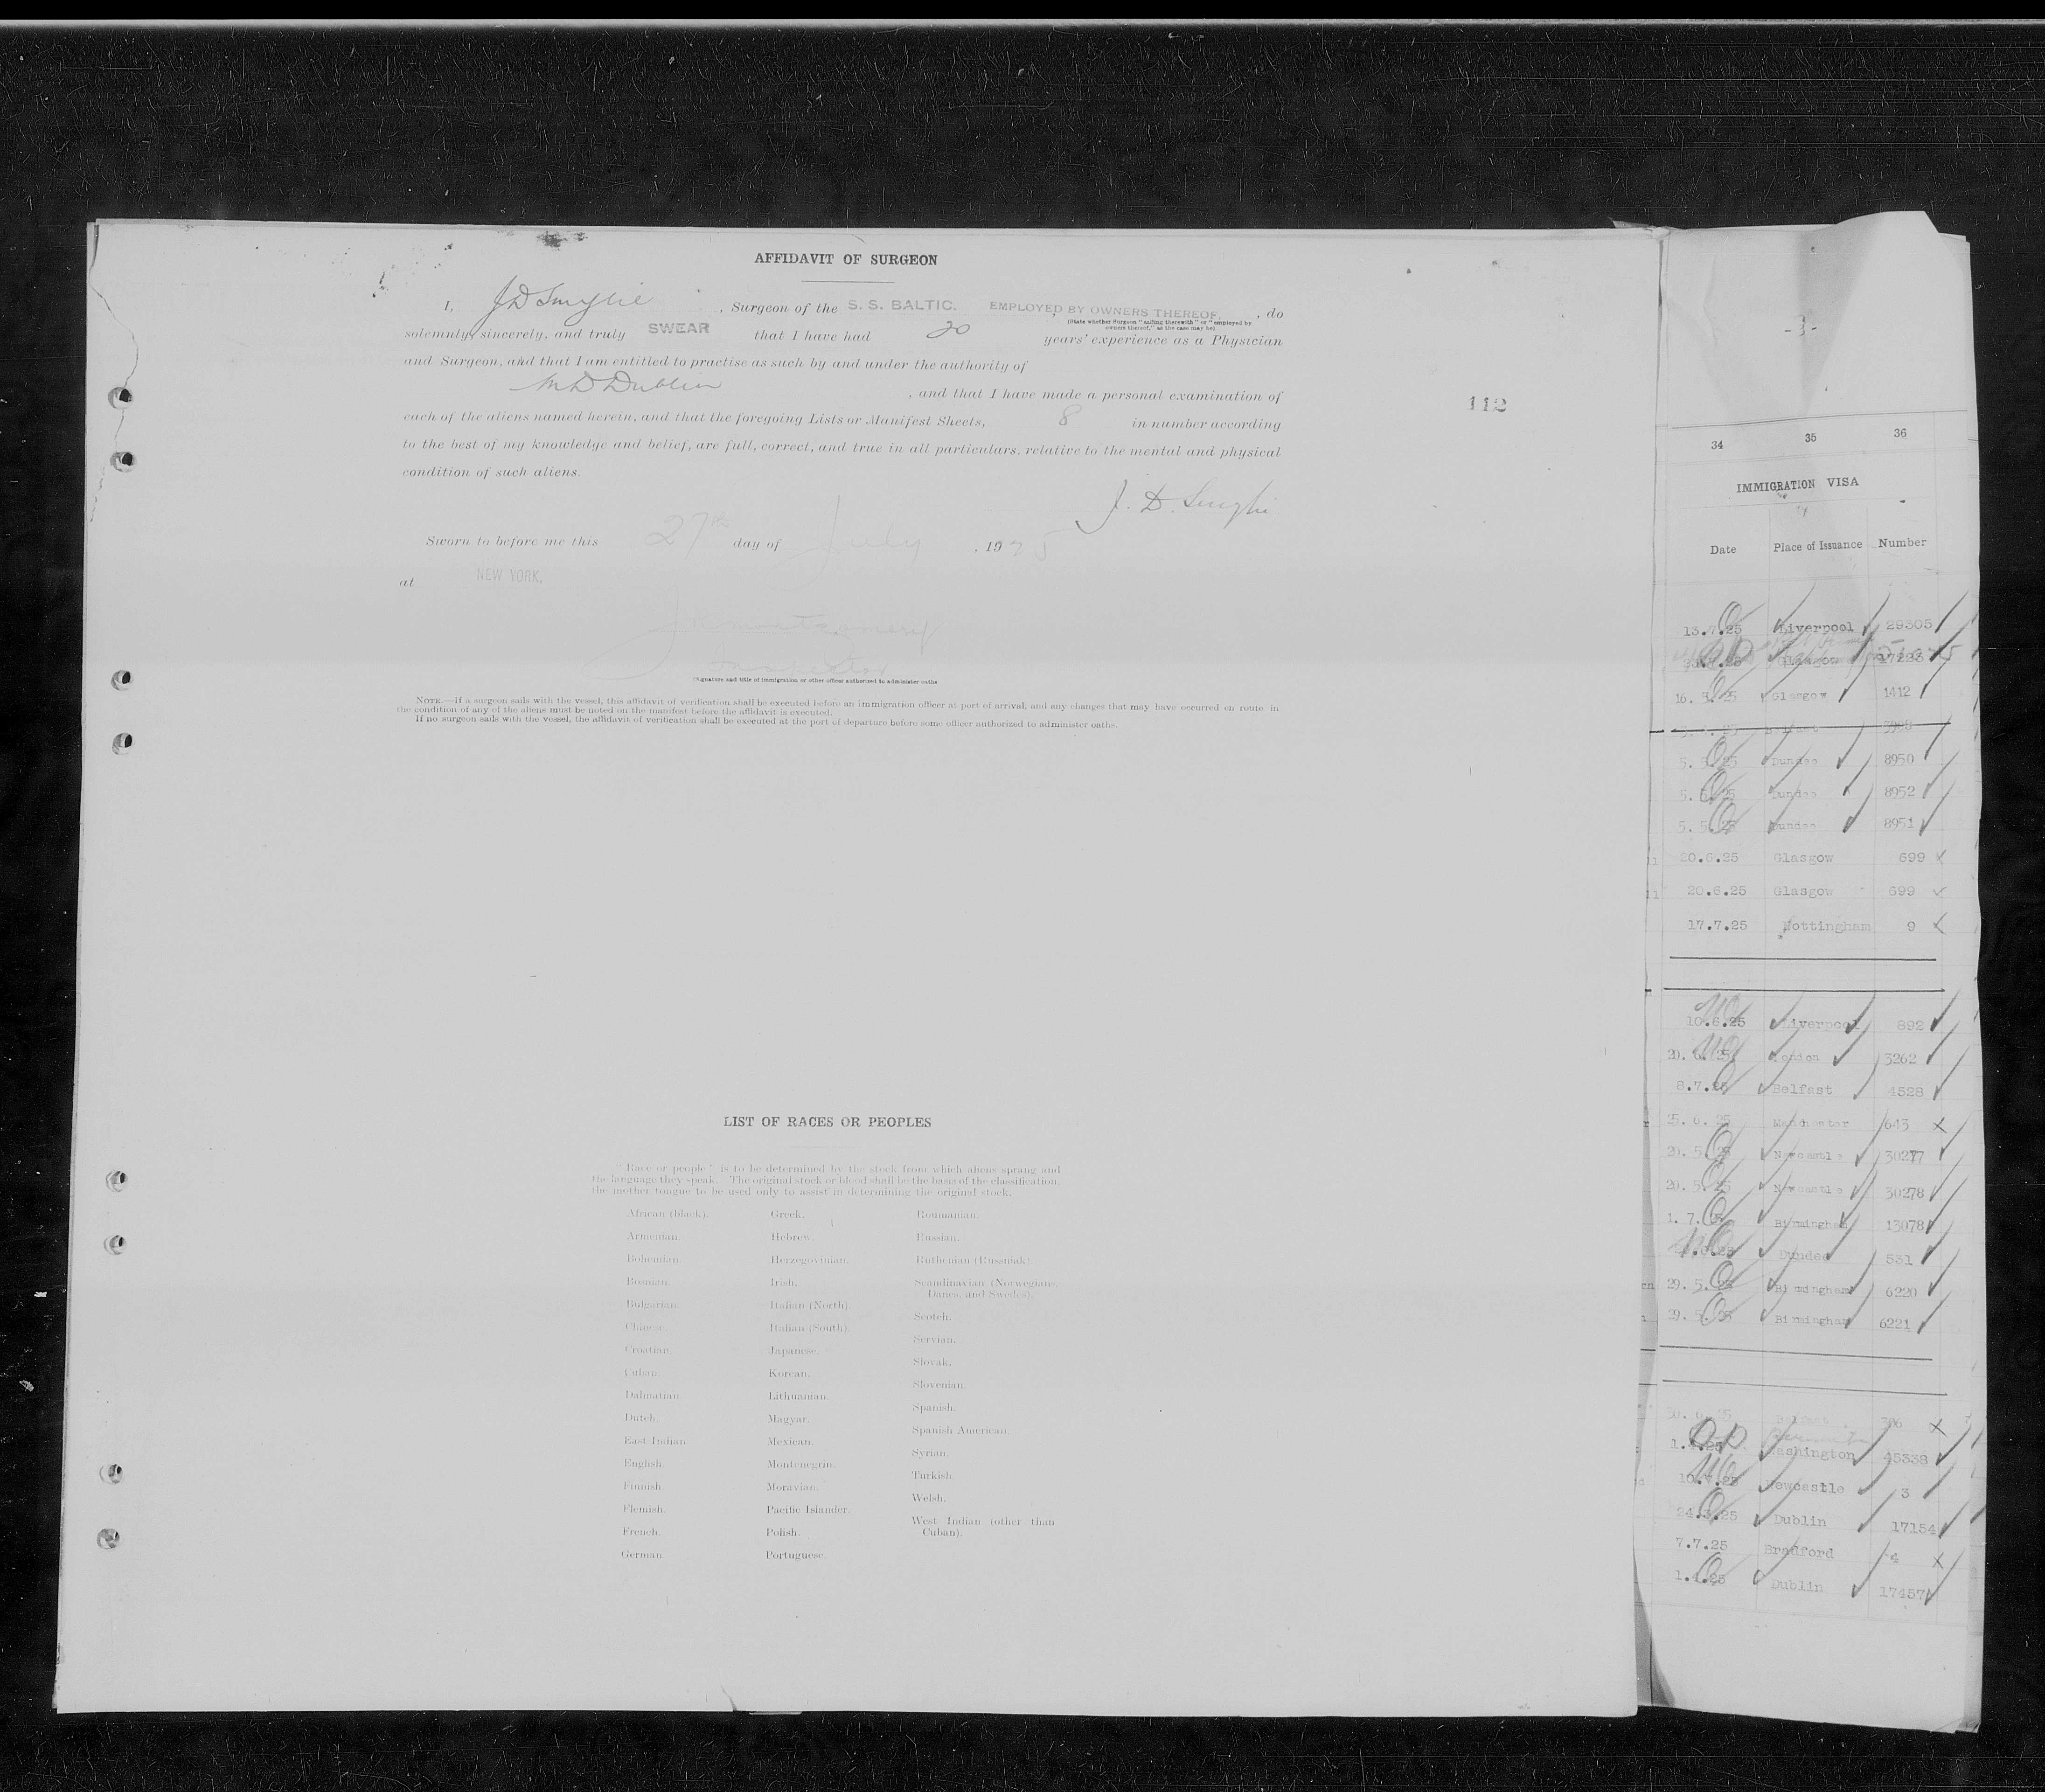 AFFIDAVIT OF SURGEON
I, J D Smylie, Surgeon of the S. S. BALTIC. EMPLOYED BY OWNERS THEREOF, , do
(State whether Surgeon "sailing therewith" or "employed by
owners thereof," as the case may be)
solemnly, sincerely, and truly SWEAR that I have had 20 years' experience as a Physician
and Surgeon, and that I am entitled to practise as such by and under the authority of
M D Dublin, and that I have made a personal examination of
each of the aliens named herein, and that the foregoing Lists or Manifest Sheets, 8 in number according
to the best of my knowledge and belief, are full, correct, and true in all particulars, relative to the mental and physical
condition of such aliens.
J. D. Smylie
Sworn to before me this 27th day of July, 1925
at NEW YORK,
Inspector
(Signature and title of immigration or other officer authorized to administer oaths
NOTE.—If a surgeon sails with the vessel, this affidavit of verification shall be executed before an immigration officer at port of arrival, and any changes that may have occurred en route in
the condition of any of the aliens must be noted on the manifest before the affidavit is executed.
If no surgeon sails with the vessel, the affidavit of verification shall be executed at the port of departure before some officer authorized to administer oaths.
112
LIST OF RACES OR PEOPLES
"Race or people" is to be determined by the stock from which aliens sprang and
the language they speak. The original stock or blood shall be the basis of the classification,
the mother tongue to be used only to assist in determining the original stock.
African (black).
Armenian.
Bohemian.
Bosnian.
Bulgarian.
Chinese.
Croatian.
Cuban.
Dalmatian.
Dutch.
East Indian.
English.
Finnish.
Flemish.
French.
German.
Greek.
Hebrew.
Herzegovinian.
Irish.
Italian (North).
Italian (South).
Japanese.
Korean.
Lithuanian.
Magyar.
Mexican.
Montenegrin.
Moravian.
Pacific Islander.
Polish.
Portuguese.
Roumanian.
Russian.
Ruthenian (Rusaniak).
Scandinavian (Norwegians,
Danes, and Swedes).
Scotch.
Servian.
Slovak.
Slovenian.
Spanish.
Spanish American.
Syrian.
Turkish.
Welsh.
West Indian (other than
Cuban).
-3-
34 35 36
IMMIGRATION VISA
Date Place of Issuance Number
13.7.25 Liverpool 29305
Glasgow 17223
16. 3. 25 Glasgow 1412
Belfast
5. 5. 25 Dundee 8950
5. 5. 25 Dundee 8952
5. 5. 25 Dundee 8951
20.6.25 Glasgow 699
20.6.25 Glasgow 699
17.7.25 Nottingham 9
10.6.25 Liverpool 892
20. 6. 25 London 3262
8.7.25 Belfast 4528
25. 6. 25 Manchester 643
20. 5. 25 Newcastle 30277
20. 5. 25 Newcastle 30278
1. 7. 25 Birmingham 13078
Dundee 531
29. 5. 25 Birmingham 6220
29. 5. 25 Birmingham 6221
30. 6. 25 Belfast
Washington 45338
10.7.25 Newcastle 3
24.3.25 Dublin 17154
7.7.25 Bradford 4
1.4.25 Dublin 17457